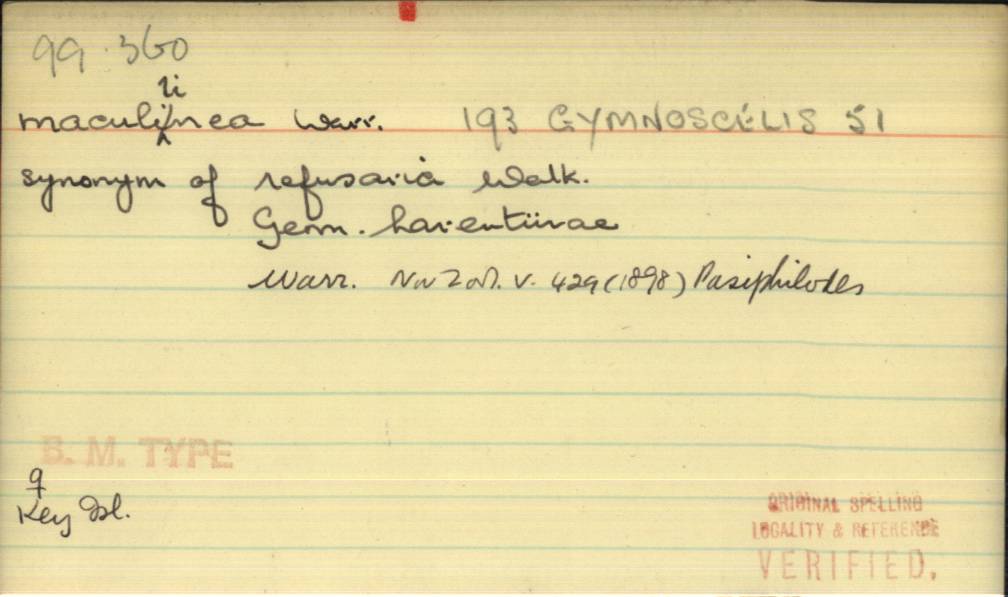 99.360
maculilinea Warr. 193 GYMNOSCELIS 51
synonym of refusaria Walk.
Geom. larentiinae
Warr. Nov Zool. V. 429 (1898) Pasiphilodes
B. M. TYPE
♀
Key Isl.
ORIGINAL SPELLING
LOCALITY & REFERENCE
VERIFIED.